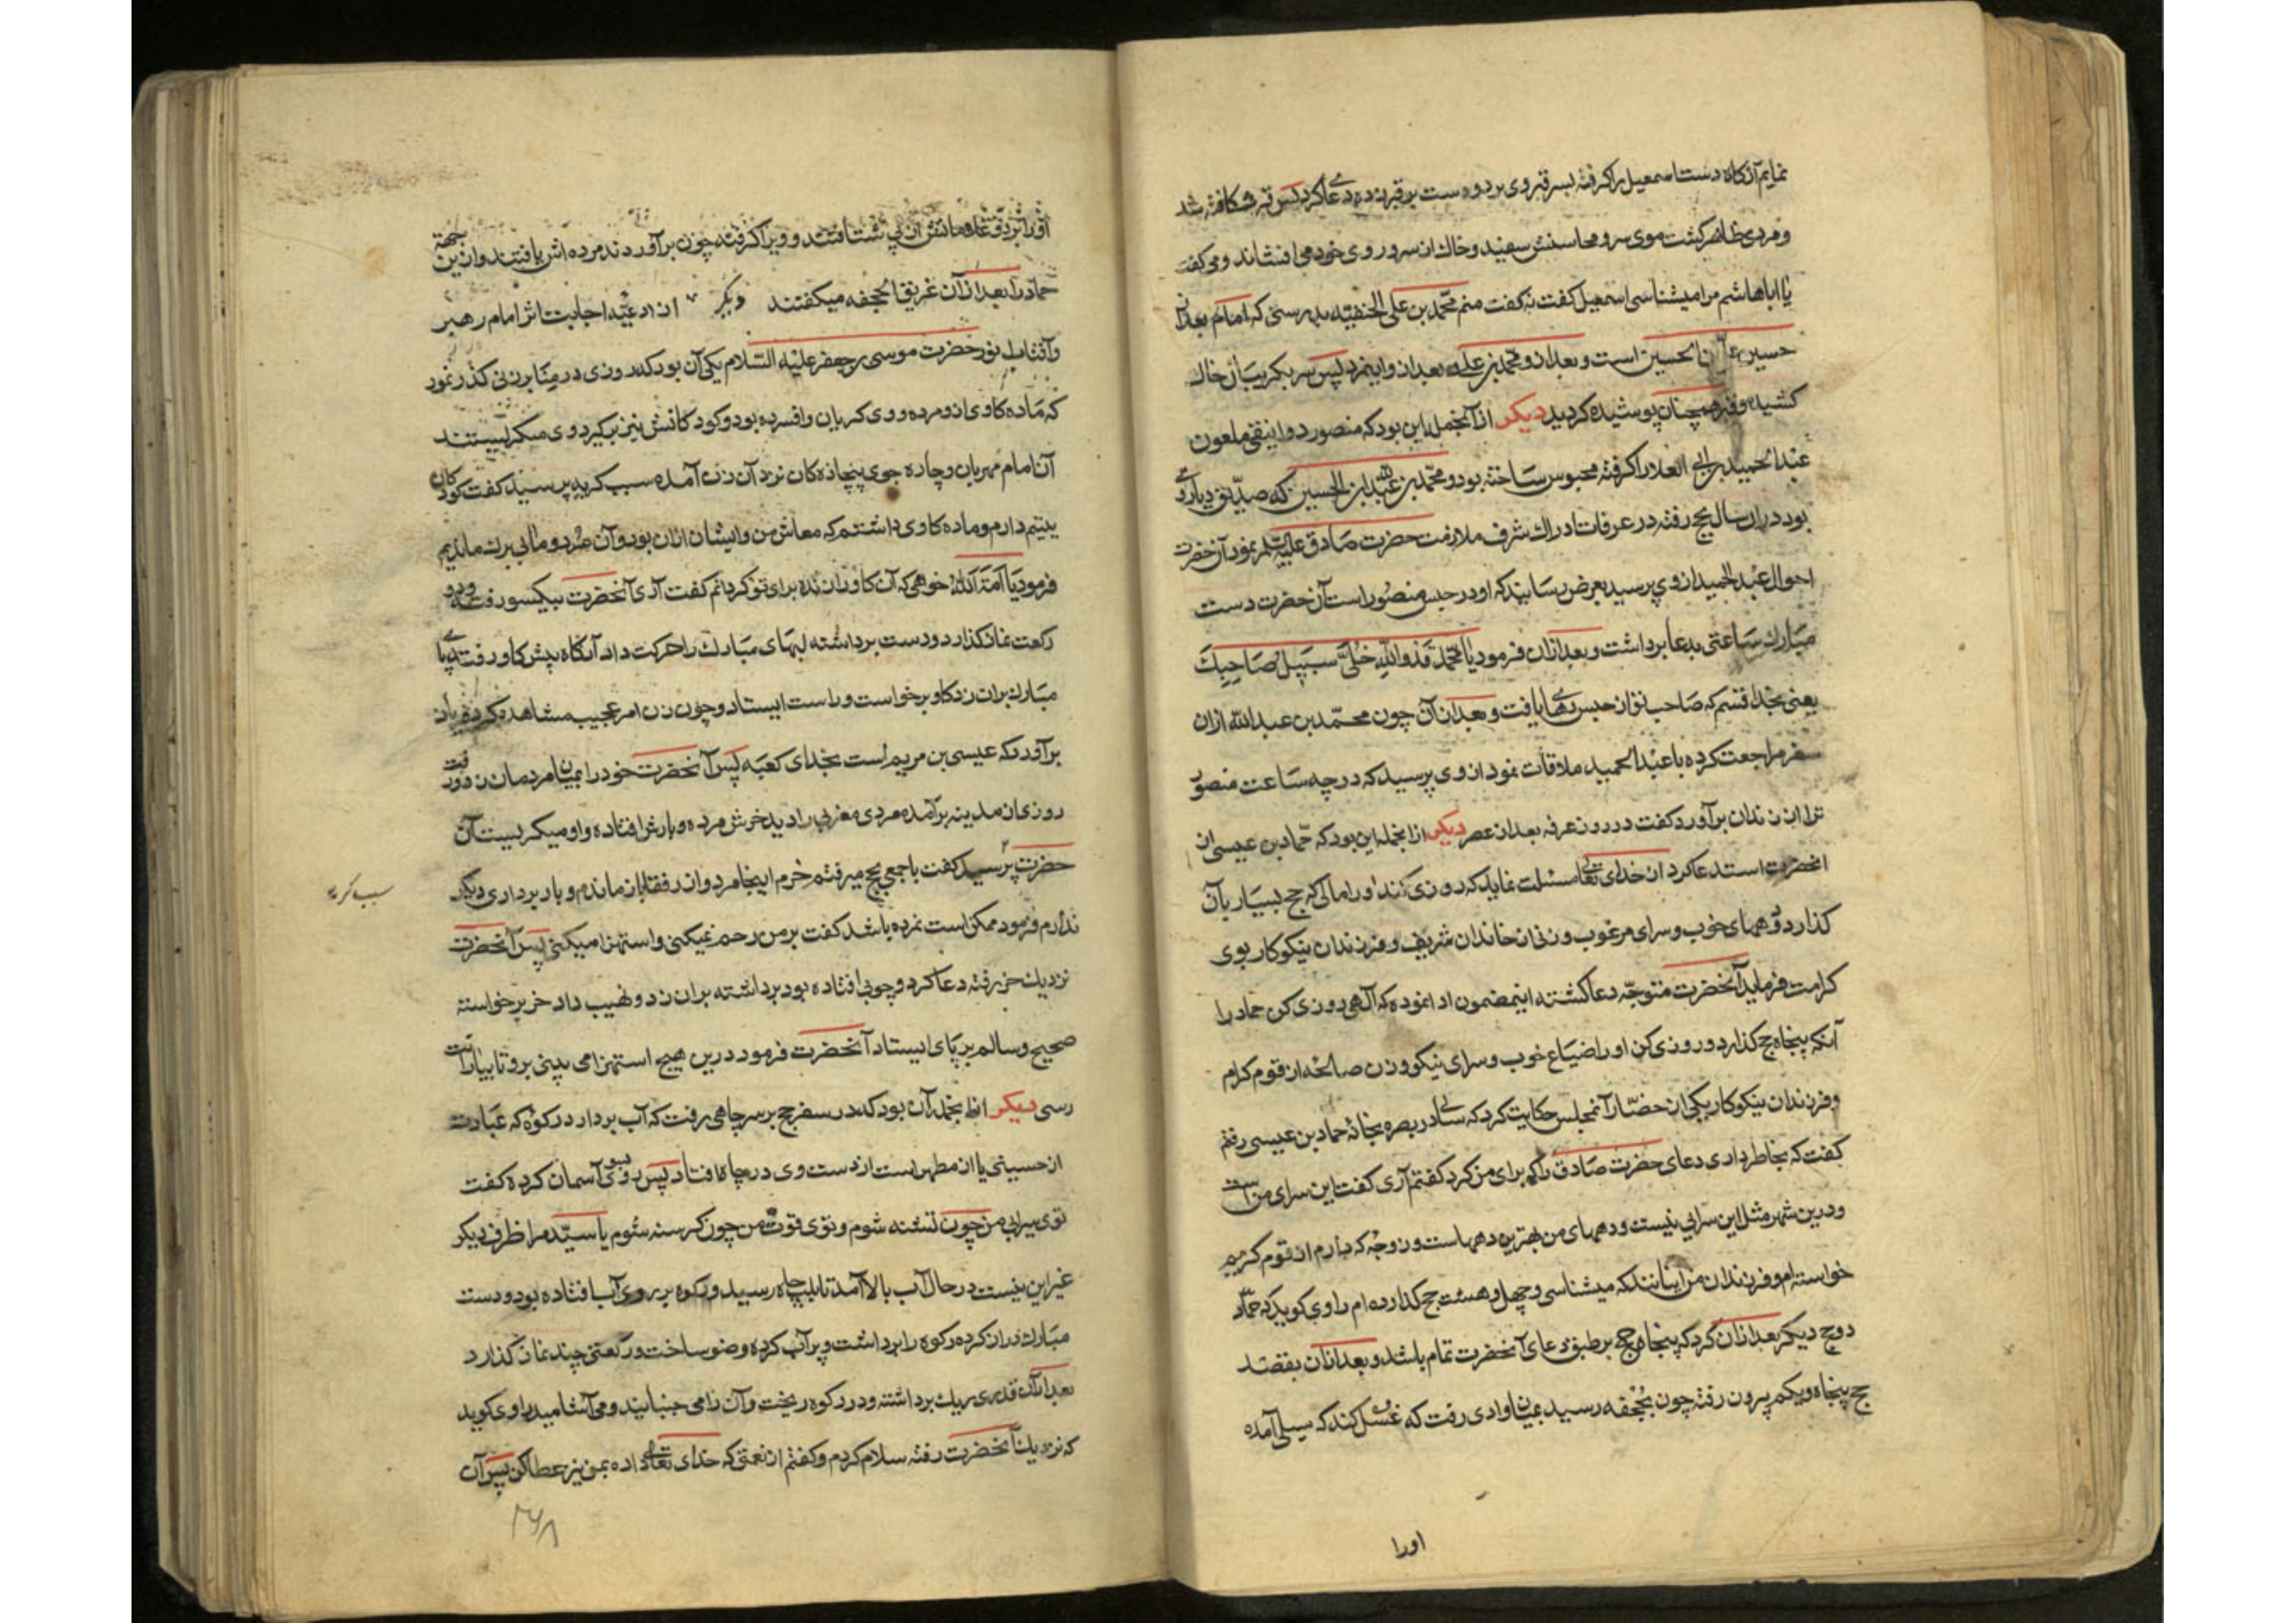 نمایم آنکاه دست اسمعیل را کرفته بسر قبر وی برد و دست بر قبر زده دعا کرد پس قبر شکافته شد
و مردی ظاهر کشت موی سر و محاسنش سفید و خاک از سر و روی خود می افشاند و می کفت
یا اباهاشم مرا میشناسی اسمعیل کفت نه کفت منم محمد بن علی الحنفیه بدرستی که امام بعد از
حسین علی بن الحسین است و بعد از و محمد بن علی و بعد از و اینمرد پس سر بکریبان خاک
کشیده و قبر همچنان پوشیده کردید دیکر از آنجمله این بود که منصور دوانیقی ملعون
عبدالحمید بن ابی العلا را کرفته محبوس ساخته بود و محمد بن عبدالله ابن الحسین که صدیق دیار وی
بود دران سال بحج رفته در عرفات ادراک شرف ملازمت حضرت صادق علیه السلم نمود آن حضرت
احوال عبدالحمید از وی پرسید بعرض رسانید که او در حبس منصور است آن حضرت دست
مبارک ساعتی بدعا برداشت و بعد ازان فرمود یا محمد قد والله خلی سبیل صاحبک
یعنی بخدا قسم که صاحب تو از حبس رهایی یافت و بعد از آن چون محمد بن عبدالله ازان
سفر مراجعت کرده با عبدالحمید ملاقات نمود از وی پرسید که در چه ساعت منصور
ترا از زندان برآورد کفت در روز عرفه بعد از عصر دیکر از انجمله این بود که حماد بن عیسی از
انحضرت استدعا کرد از خدای تعالی مسئلت نماید که روزی کند او را مالی که حج بسیار بآن
کذارد و دههای خوب و سرای مرغوب و زنی از خاندان شریف و فرزندان نیکوکار بوی
کرامت فرماید آنحضرت متوجه دعا کشته اینمضمون ادا نموده که آلهی روزی کن حماد را
آنکه پنجاه حج کذارد و روزی کن او را ضیاع خوب و سرای نیکو و زن صالحه از قوم کرام
و فرزندان نیکوکار یکی از حضار آنمجلس حکایت کرد که سالی در بصره بخانه حماد بن عیسی رفتم
کفت که بخاطر داری دعای حضرت صادق را که برای من کرد کفتم آری کفت این سرای من است
و درین شهر مثل این سرایی نیست و دههای من بهترین دههاست و زوجه که دارم از قوم کریم
خواسته ام و فرزندان من اینانند که میشناسی و چهل و هشت حج کذارده ام راوی کوید که حماد
دو حج دیکر بعد ازان کرد که پنجاه حج بر طبق دعای آنحضرت تمام باشد و بعد ازان بقصد
حج پنجاه و یکم بیرون رفته چون بجحفه رسید بمیان وادی رفت که غسل کند که سیلی آمده
اورا
او را برد و غلامانش از پی شتافتند و ویرا کرفتند چون برآوردند مرده اش یافتند و ازین جهة
حماد را بعد از آن غریق الجحفه میکفتند دیکر از ادعیهٔ اجابت اثر امام رهبر
و آفتاب نور حضرت موسی بن جعفر علیه السلام یکی آن بود که روزی در منا بر زنی کذر نمود
که ماده کاوی از و مرده و وی کریان و افسرده بود و کودکانش نیز بکرد وی میکریستند
آن امام مهربان و چاره جوی بیچاره کان نزد آن زن آمده سبب کریه پرسید کفت کودکان
یتیم دارم و ماده کاوی داشتم که معاش من و ایشان ازان بود و آن مرد و ما بی برک ماندیم
فرمود یا امة الله خواهی که آن کاو را زنده برای تو کردانم کفت آری آنحضرت بیکسو رفت و دو
رکعت نماز کذارد و دست برداشته لبهای مبارک را حرکت داد آنکاه پیش کاو رفت و پای
مبارک بران زد کاو برخواست و راست ایستاد و چون زن امر عجیب مشاهده کرد فریاد
برآورد که عیسی بن مریم است بخدای کعبه پس آنحضرت خود را بمیان مردمان زد و رفت
روزی از مدینه برآمده مردی مغربی را دید خرش مرده و بارش افتاده و او میکریست آن
حضرت پرسید کفت با جمعی بحج میرفتم خرم اینجا مرد و از رفقا باز ماندم و باربرداری دیکر
سبب کریه
ندارم فرمود ممکنست نمرده باشد کفت بر من رحم نمیکنی و استهزا میکنی پس آنحضرت
نزدیک خر رفته دعا کرد و چوبی افتاده بود برداشته بران زد و نهیب داد خر برخواسته
صحیح و سالم بر پای ایستاد آنحضرت فرمود درین هیچ استهزا می بینی برو تا بیارانت
رسی دیکر از انجمله آن بود که در سفر حج بر سر چاهی رفت که آب بردارد رکوه که عبارت
از حسینی یا از مطهر است از دست وی در چاه افتاد پس روی بسوی آسمان کرده کفت
توی سیرابی من چون تشنه شوم و توی قوت من چون کرسنه شوم یا سید مرا ظرف دیکر
غیر این نیست در حال آب بالا آمد تا بلب چاه رسید و رکوه بر روی آب افتاده بود و دست
مبارک دراز کرده رکوه را برداشت و پر آب کرده وضو ساخت و رکعتی چند نماز کذارد
بعد ازان قدری ریک برداشته و در رکوه ریخت و آن را می جنبانید و می آشامید راوی کوید
که نزدیک آنحضرت رفته سلام کردم و کفتم از نعمتی که خدای تعالی داده بمن نیز عطا کن پس آن